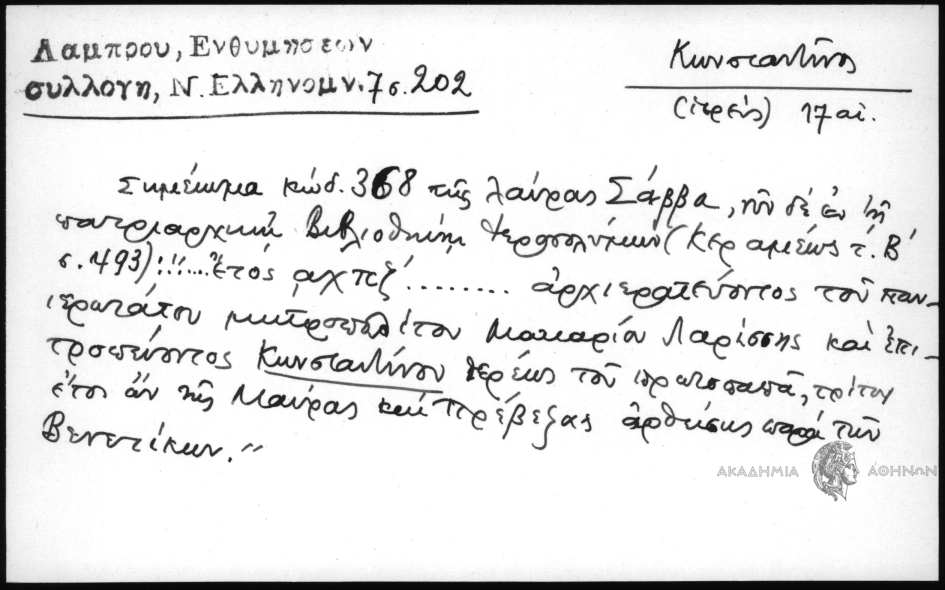 Λαμπρου, Ενθυμησεων
συλλογη, Ν. Ελληνομν. 7 σ. 202
Κωνσταντίνος
(ἱερεύς) 17 αἰ.
Σημείωμα κώδ. 368 τῆς λαύρας Σάββα, νῦν δέ ἐν τῇ
πατριαρχικῇ Βιβλιοθήκῃ Ἱεροσολύμων (Κεραμέως τ. Β΄
σ. 493): "....Ἔτος αχπζ΄........ ἀρχιερατεύοντος τοῦ παν-
ιερωτάτου μητροπολίτου Μακαρίου Λαρίσσης καί ἐπι-
τροπεύοντος Κωνσταντίνου ἱερέως τοῦ πρωτοπαπᾶ, τρίτον
ἔτος ἄν τῆς Μαύρας καί Πρέβεζας ἀρθείσης παρά τῶν
Βενετίκων."
ΑΚΑΔΗΜΙΑ ΑΘΗΝΩΝ